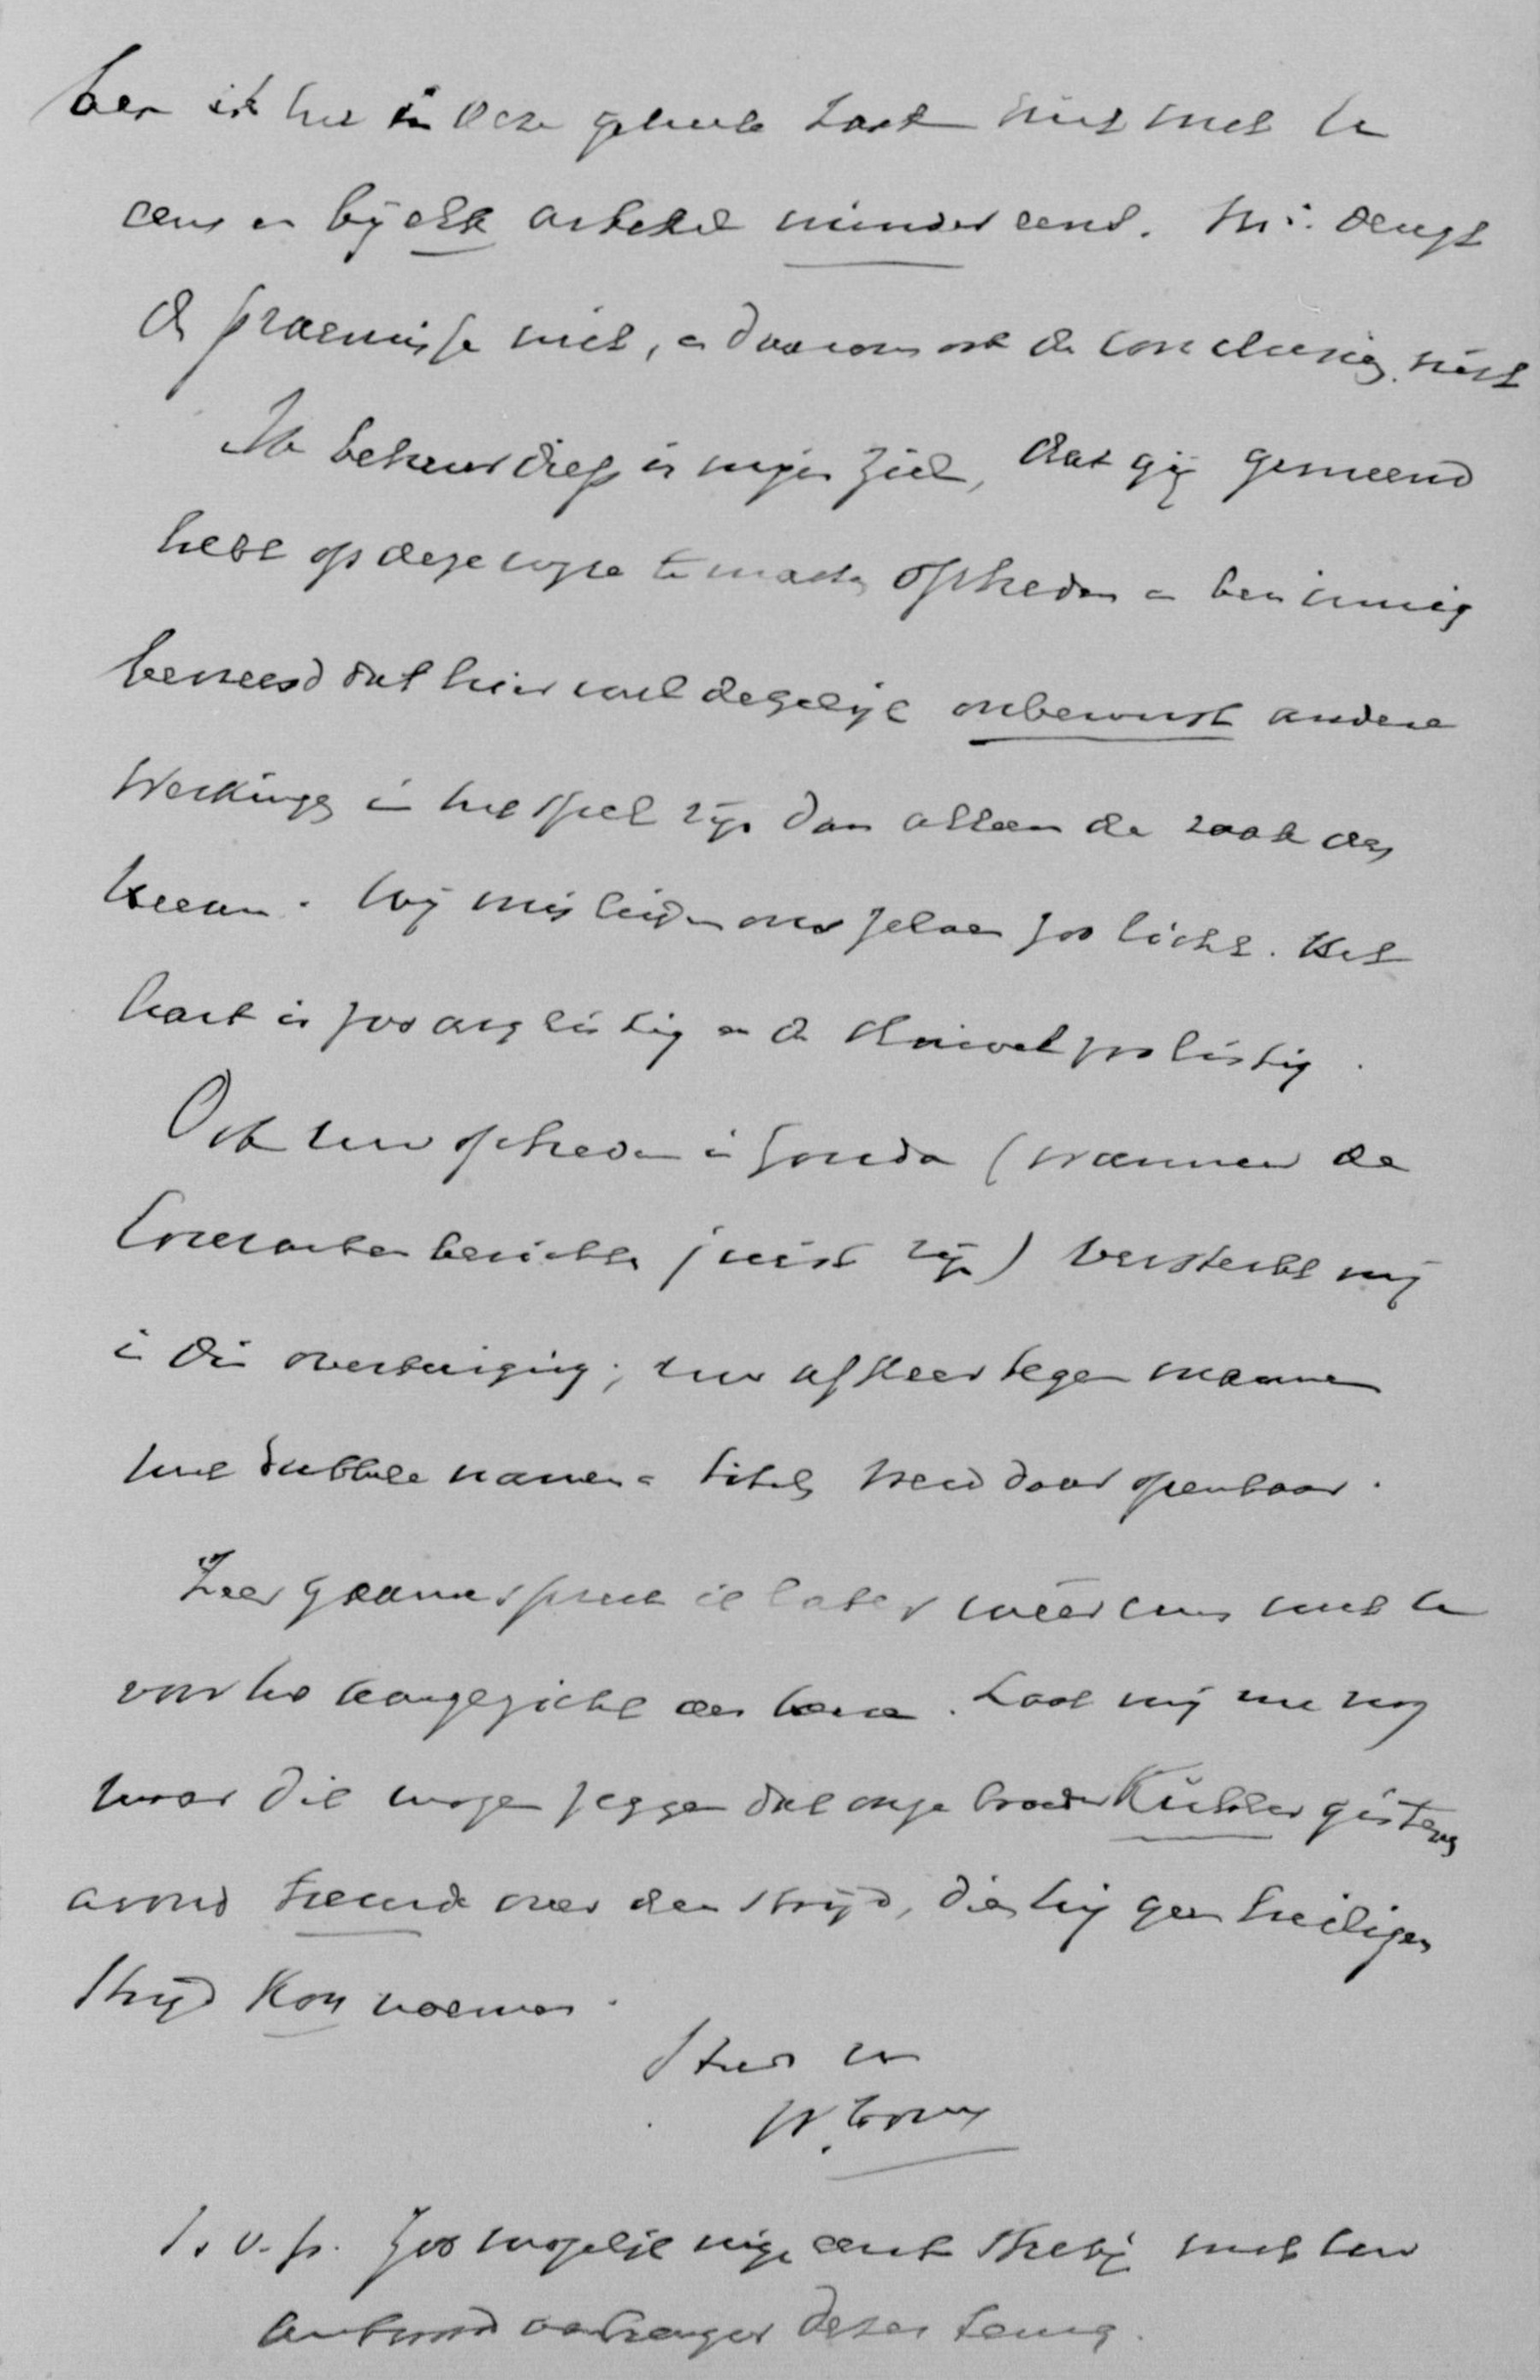 ben ik het in deze geheele zaak niet met U
eens en bij elk artikel minder eens. M.i. deugt
de praemisse niet, en daarom ook de conclusie niet
Ik betreur diep in mijn ziel, dat gij gemeend
hebt op deze wijze te moeten optreden en ben innig
bevreesd dat hier wel degelijk onbewust andere
werkingen in het spel zijn dan alleen de zaak des
Heeren. Wij misleiden ons zelven zoo licht. Het
hart is zoo arglistig en de duivel zoo listig.
Ook uw optreden in Gouda (wanneer de
Couranten berichten juist zijn) versterkt mij
in die overtuiging; uw afkeer tegen mannen
met dubbele namen en titels werd daar openbaar.
Zeer gaarne spreek ik later weer eens met U
voor het aangezicht des Heeren. Laat mij nu nog
maar dit mogen zeggen dat onze broeder gisteren
avond treurde over den strijd, dien hij geen heiligen
strijd kon noemen.
Steeds uw
W.
s.v.p. zoo mogelijk mijn eerste met uw
antwoord ontvangen dezer terug.